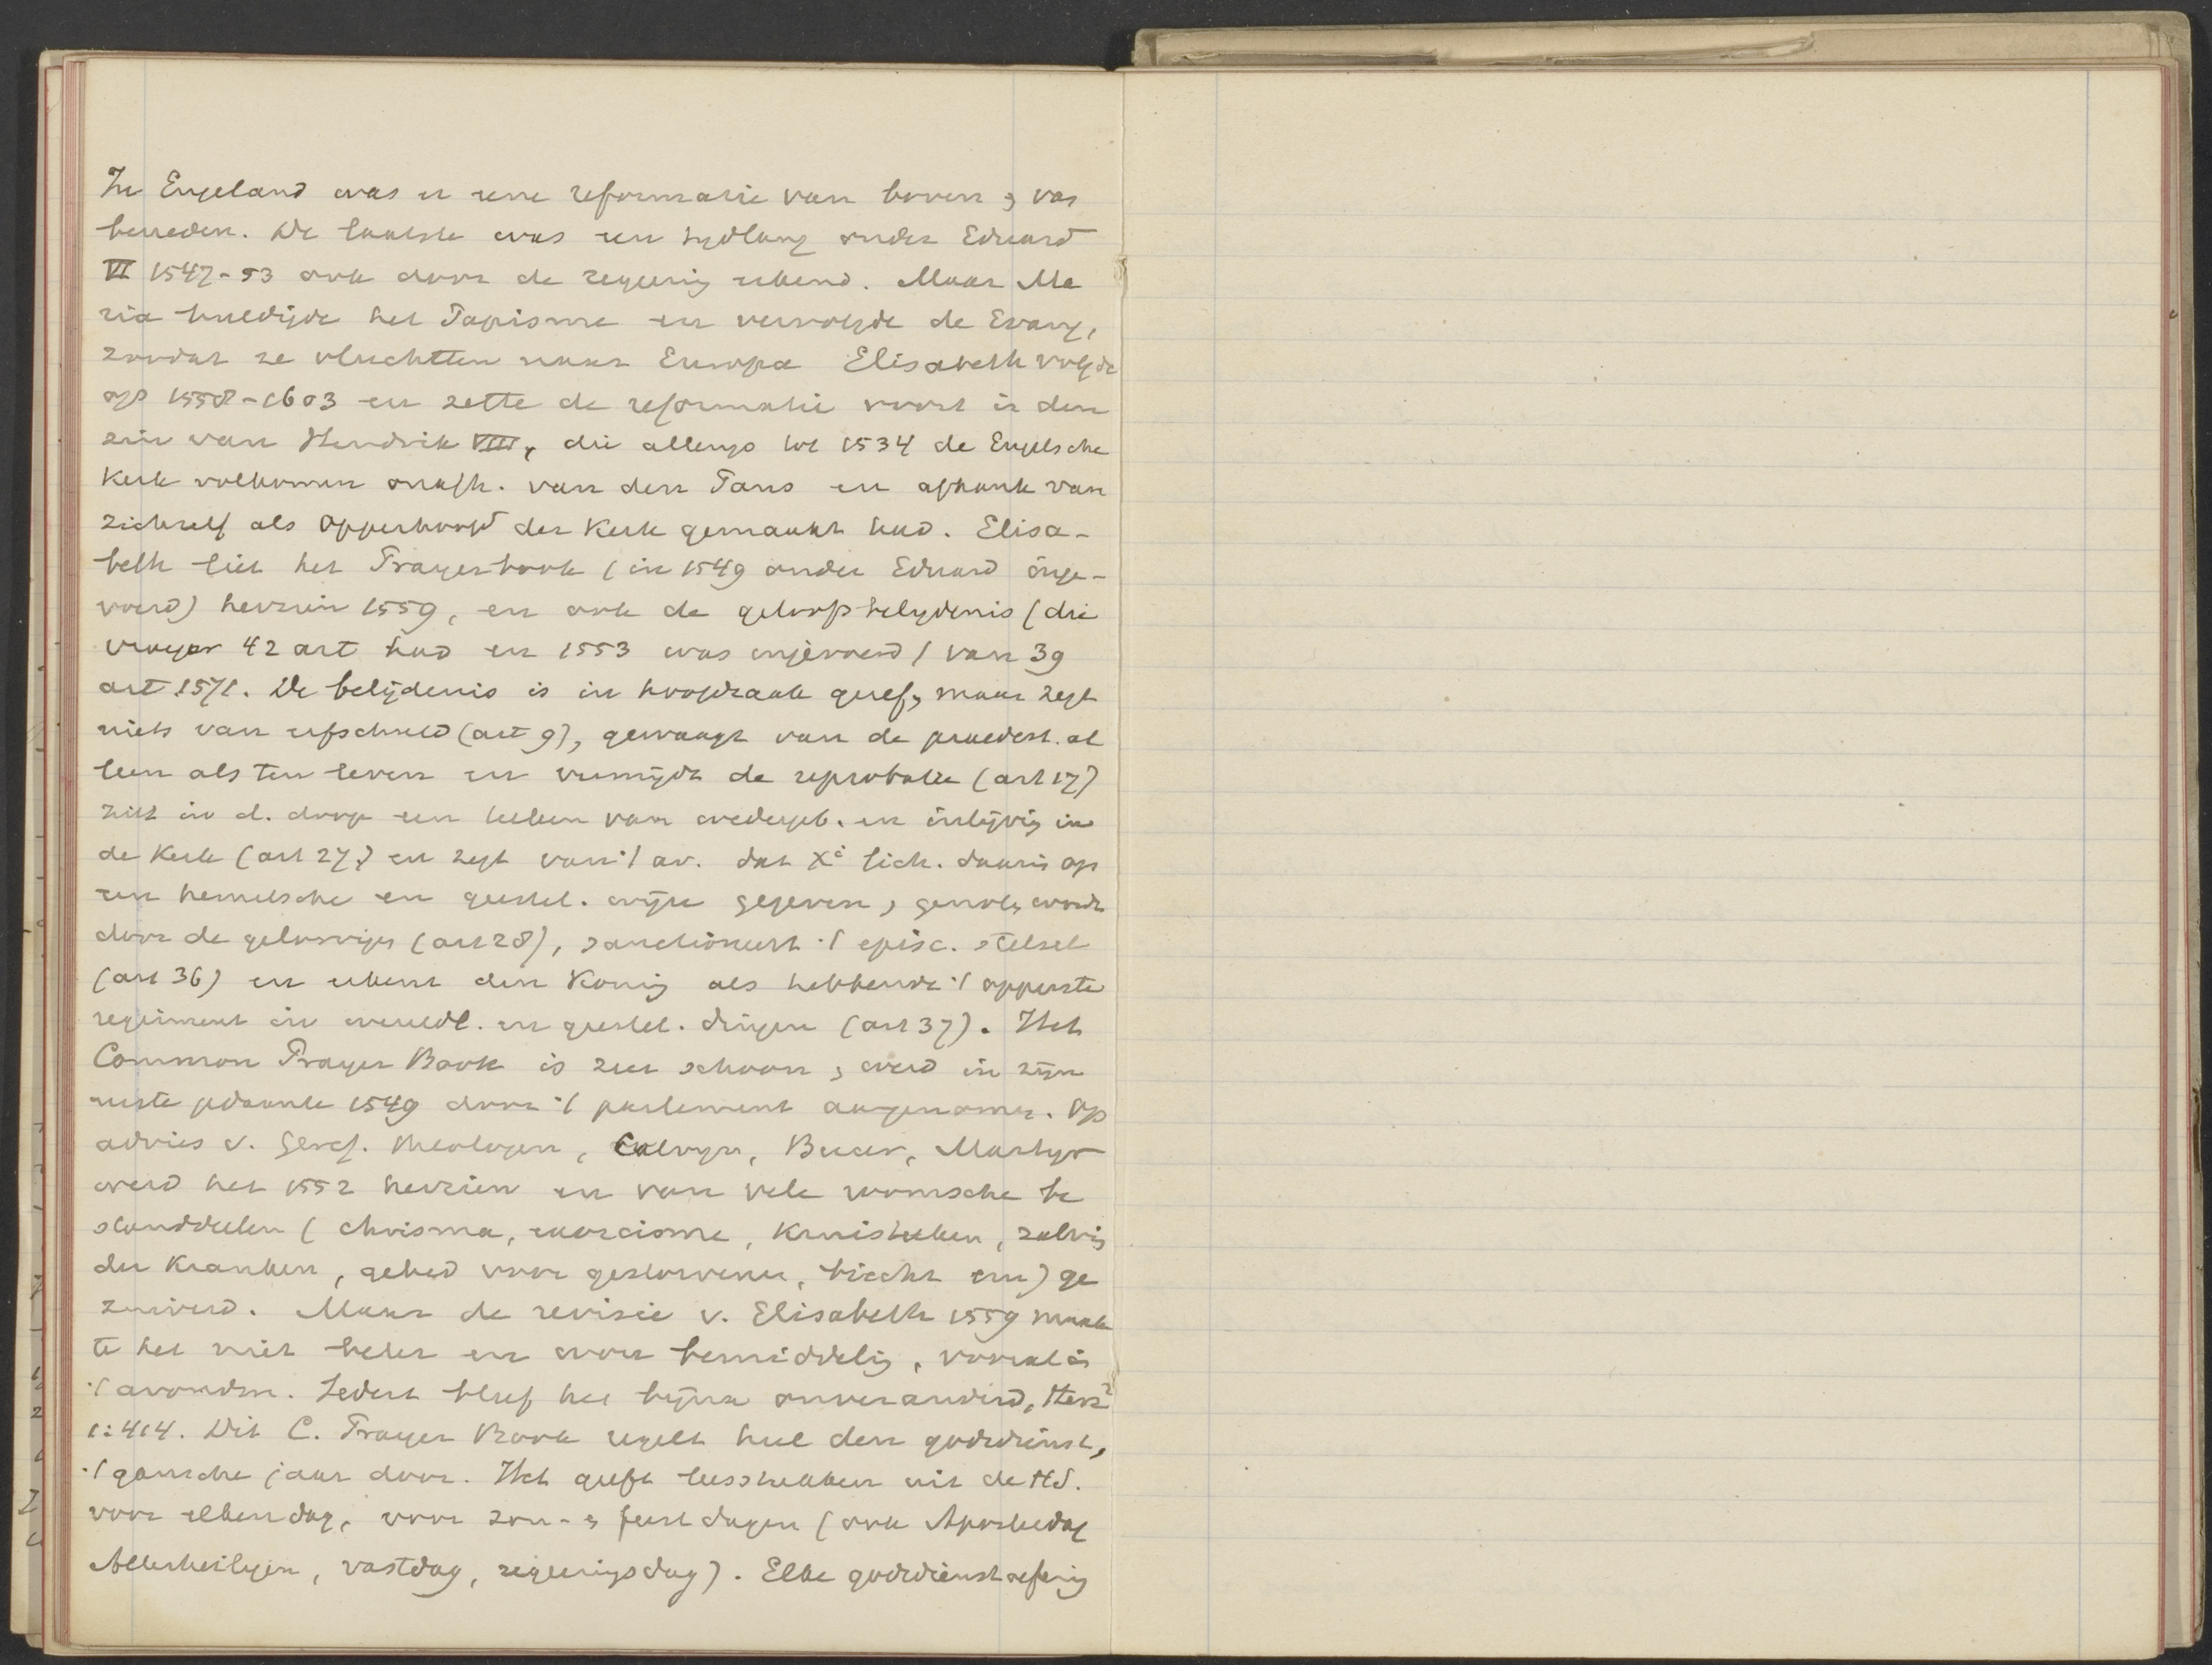 In Engeland was er eene reformatie van boven & van
beneden. De laatste was een tydlang onder Eduard
VI 1547-53 ook door de regeering erkend. Maar Ma
ria huldigde het Papisme en vervolgde de Evang,
zoodat ze vluchtten naar Europa Elisabeth volgde
op 1558-1603 en zette de reformatie voort in den
zin van Hendrik VIII, die allengs tot 1534 de Engelsche
Kerk volkomen onafh. van den Paus en afhank van
zichzelf als opperhoofd der Kerk gemaakt had. Elisa-
beth liet het Prayerbook (in 1549 onder Eduard inge-
voerd) herzien 1559, en ook de geloofsbelydenis (die
vroeger 42 art had en 1553 was ingevoerd) van 39
art 1571. De belijdenis is in hoofdzaak geref, maar zegt
niets van erfschuld (art 9), gewaagt van de praedest. al
leen als ten leven en vermijdt de reprobatie (art 17)
ziet in d. doop een teeken van wedergeb. en inlijving in
de Kerk (art 27,) en zegt van 't av. dat X's lich. daarin op
een hemelsche en geestel. wijze gegeven, genoten wordt
door de geloovigen (art 28), sanctioneert 't episc. stelsel
(art 36) en erkent den Koning als hebbende 't opperste
regiment in wereldl. en geestel. dingen (art 37). Het
Common Prayer Book is zeer schoon, werd in zijn
eerste gedaante 1549 door 't parlement aangenomen. Op
advies v. Geref. theologen, Calvyn, Bucer, Martyr
werd het 1552 herzien en van vele roomsche be
standdeelen (chrisma, exorcisme, Kruisteeken, zalving
der Kranken, gebed voor gestorvenen, biecht enz) ge
zuiverd. Maar de revisie v. Elisabeth 1559 maak
te het niet beter en was bemiddelig, vooral in
't avondm. Sedert bleef het bijna onveranderd, Herz²
1:414. Dit C. Prayer Book regelt heel den godsdienst,
't gansche jaar door. Het geeft leesstukken uit de HS.
voor elken dag, voor zon- & feestdagen (ook Aposteldag
Allerheiligen, vastdag, regeeringsdag). Elke godsdienstoefening